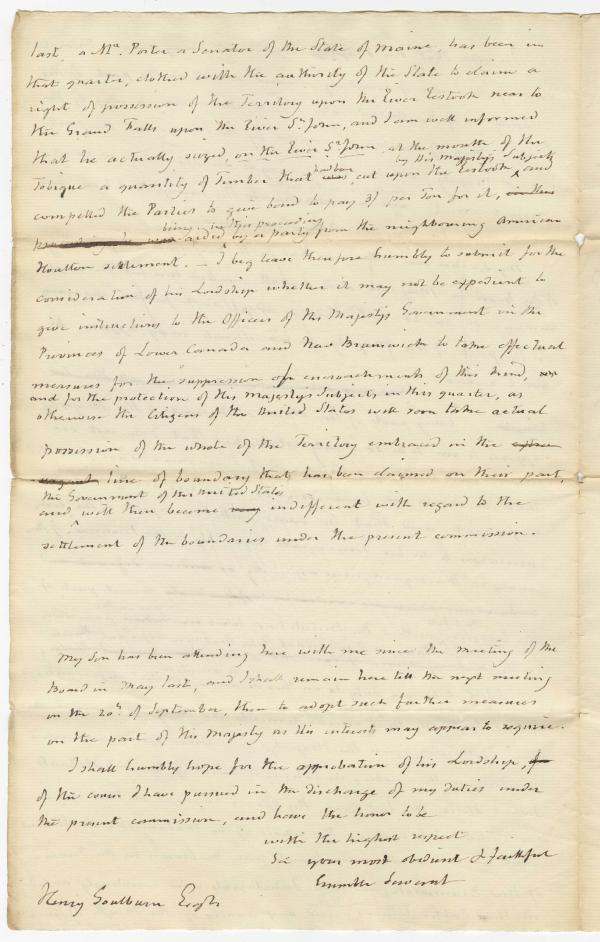 last, a Mr. Porter a Senator of the State of Maine, has been in
that quarter, clothed with the authority of the State to claim a
right of possession of the Territory upon the River Restook near to
the Grand Falls upon the River St. John, and I am well informed
that he actually seized, on the River St. John, at the mouth of the
by His Majesty's Subjects
Tobique a quantity of Timber that had been cut upon the Restook, and
compelled the Parties to give bond to pay 3/ per Ton for it, in this
being in this proceeding
aided by a party from the neighbouring American
Houlton settlement. — I beg leave therefore humbly to submit for the
consideration of his Lordship whether it may not be expedient to
give instructions to the Officers of His Majesty's Government in the
Provinces of Lower Canada and New Brunswick to take effectual
measures for the suppression of encroachments of this kind,
and for the protection of His Majesty's Subjects in this quarter, as
otherwise the Citizens of the United States will soon take actual
possession of the whole of the Territory embraced in the
line of boundary that has been claimed on their part,
the Government of the United States
and, will then become very indifferent with regard to the
settlement of the boundaries under the present commission.
My Son has been attending here with me since the meeting of the
Board in May last, and I shall remain here till the next meeting
on the 20th. of September, then to adopt such further measures
on the part of His Majesty as His interests may appear to require.
I shall humbly hope for the approbation of his Lordship,
of the course I have pursued in the discharge of my duties under
the present commission, and have the honor to be
with the highest respect
Sir your most obedient & faithful
humble Servant
Henry Goulburn Esqr